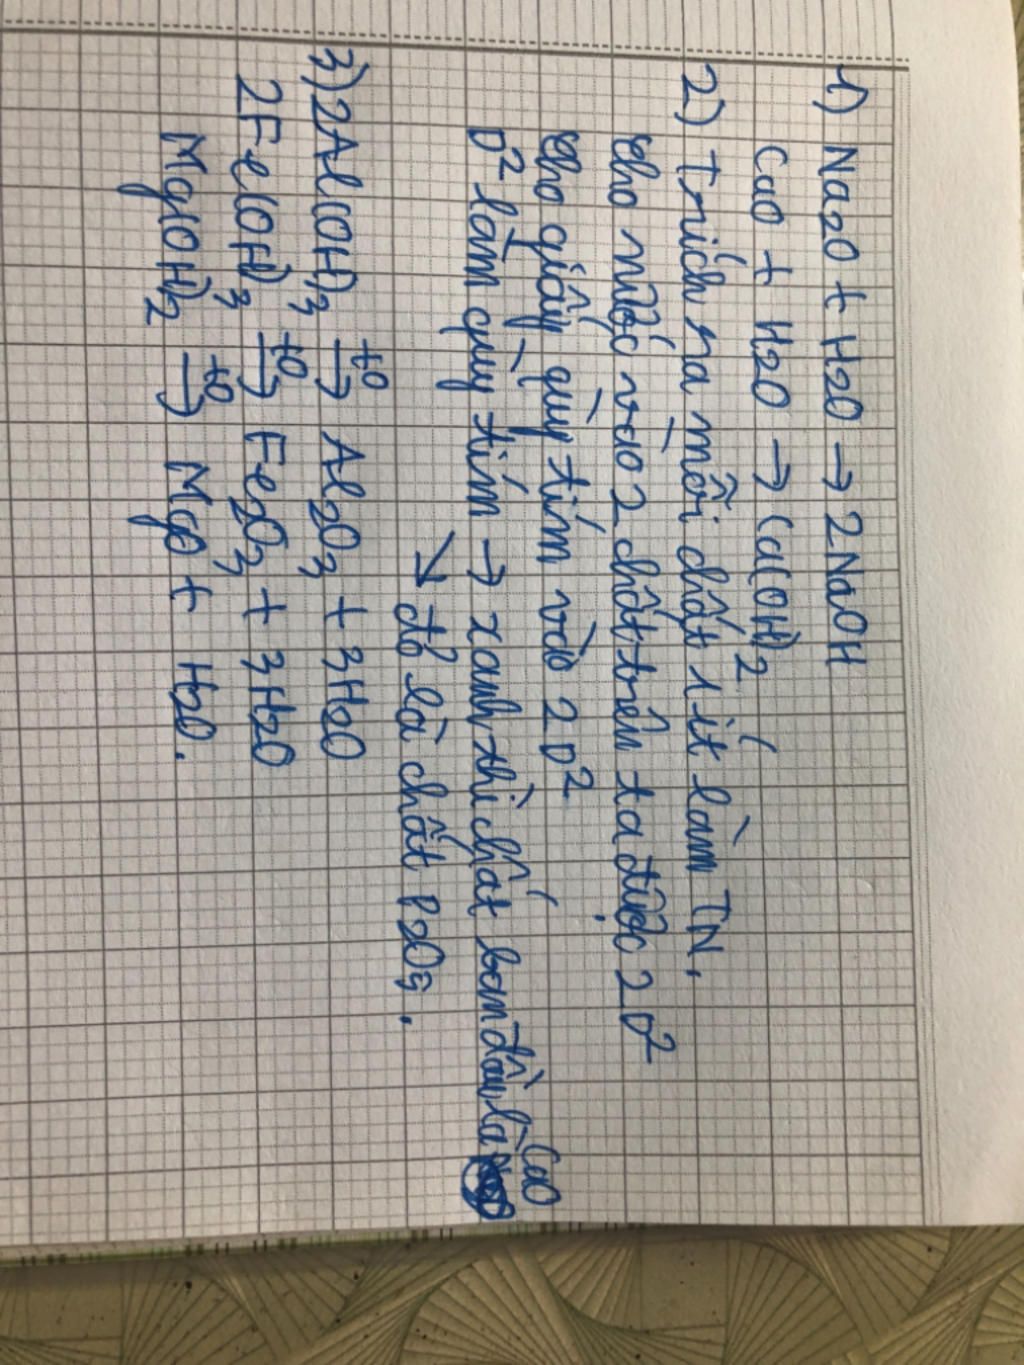 1) Na2O + H2O → 2NaOH
CaO + H2O → Ca(OH)2
2) trích ra mỗi chất 1 ít làm TN.
cho nước vào 2 chất trên ta được 2 D²
cho giấy qùy tím vào 2 D²
D² làm quỳ tím → xanh thì chất ban đầu là CaO
↘ đỏ là chất P2O5.
3) 2Al(OH)3 t0→ Al2O3 + 3H2O
2Fe(OH)3 t0→ Fe2O3 + 3H2O
Mg(OH)2 t0→ MgO + H2O.